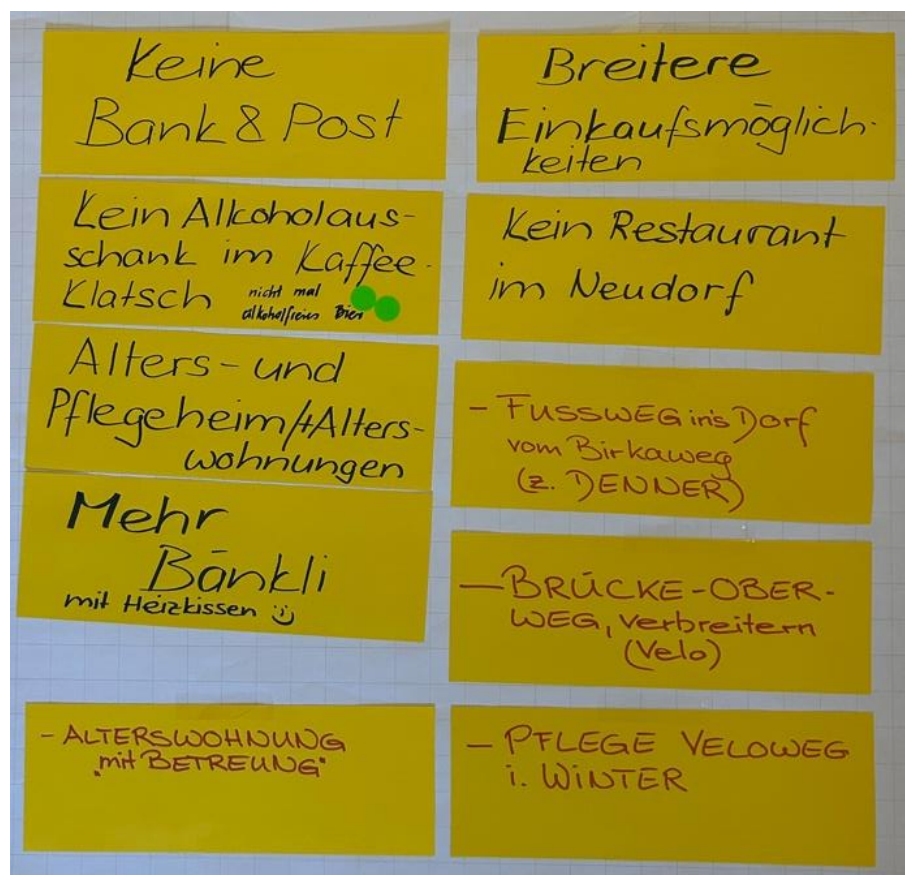 Keine
Bank & Post
Kein Alkoholaus-
schank im Kaffee-
Klatsch nicht mal
alkoholfreies Bier
Alters- und
Pflegeheim/+Alters-
wohnungen
Mehr
Bänkli
mit Heizkissen
- ALTERSWOHNUNG
"mit BETREUNG"
Breitere
Einkaufsmöglich-
keiten
Kein Restaurant
im Neudorf
- FUSSWEG in's Dorf
vom Birkaweg
(z. DENNER)
- BRÜCKE-OBER-
WEG, verbreitern
(Velo)
- PFLEGE VELOWEG
i. WINTER